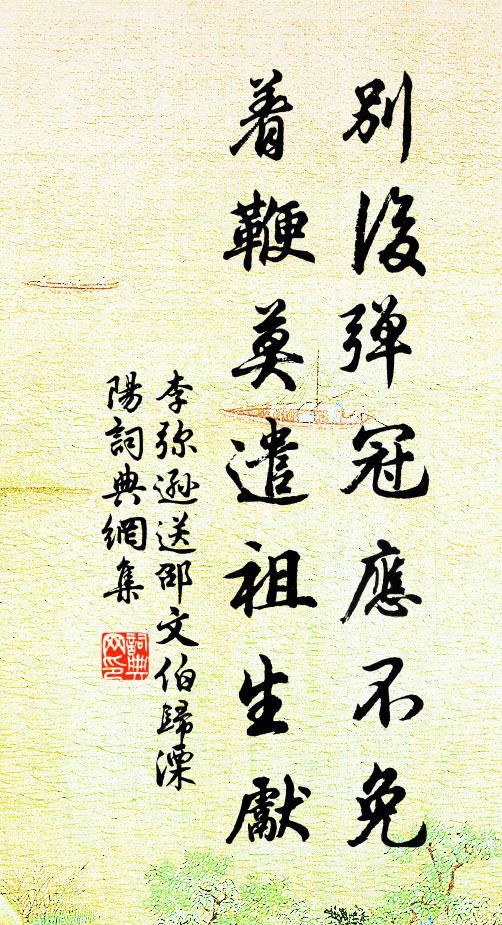 別後弹冠應不免
着鞭莫遣祖生獻
李弥遜送邵文伯歸溧
陽詞典網集
詞典
网印